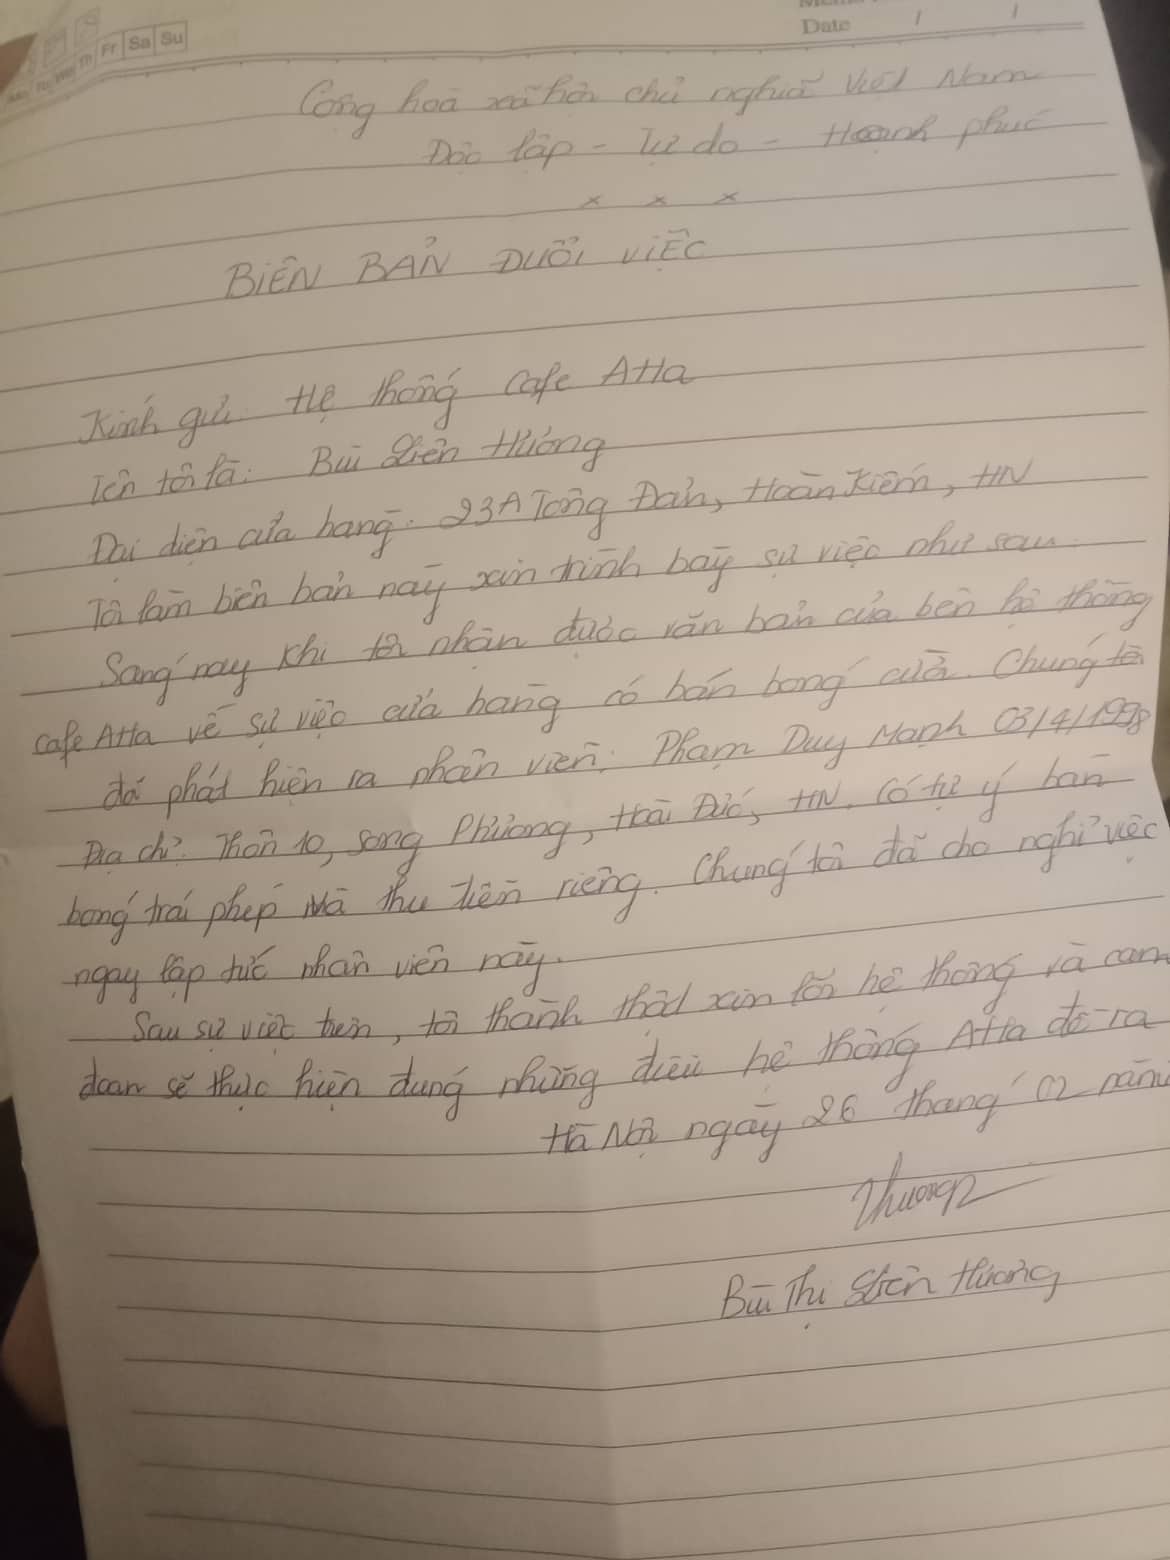 Th Fr Sa Su
Date / /
Cộng hoà xã hội chủ nghĩa Việt Nam
Độc lập - Tự do - Hạnh phúc
x x x
BIÊN BẢN ĐUỔI VIỆC
Kính gửi: Hệ thống Cafe Atta
Tên tôi là: Bùi Liên Hương
Đại diện cửa hàng: 23A Tông Đản, Hoàn Kiếm, HN
Tôi làm biên bản này xin trình bày sự việc như sau:
Sáng nay khi tôi nhận được văn bản của bên hệ thống
cafe Atta về sự việc cửa hàng có bán bóng cười. Chúng tôi
đã phát hiện ra nhân viên: Phạm Duy Mạnh 03/4/1998
Địa chỉ: Thôn 10, Song Phương, Hoài Đức, HN. Có tự ý bán
bóng trái phép mà thu tiền riêng. Chúng tôi đã cho nghỉ việc
ngay lập tức nhân viên này.
Sau sự việc trên, tôi thành thật xin lỗi hệ thống và cam
đoan sẽ thực hiện đúng những điều hệ thống Atta đề ra
Hà Nội ngày 26 tháng 02 năm
Hương
Bùi Thị Liên Hương